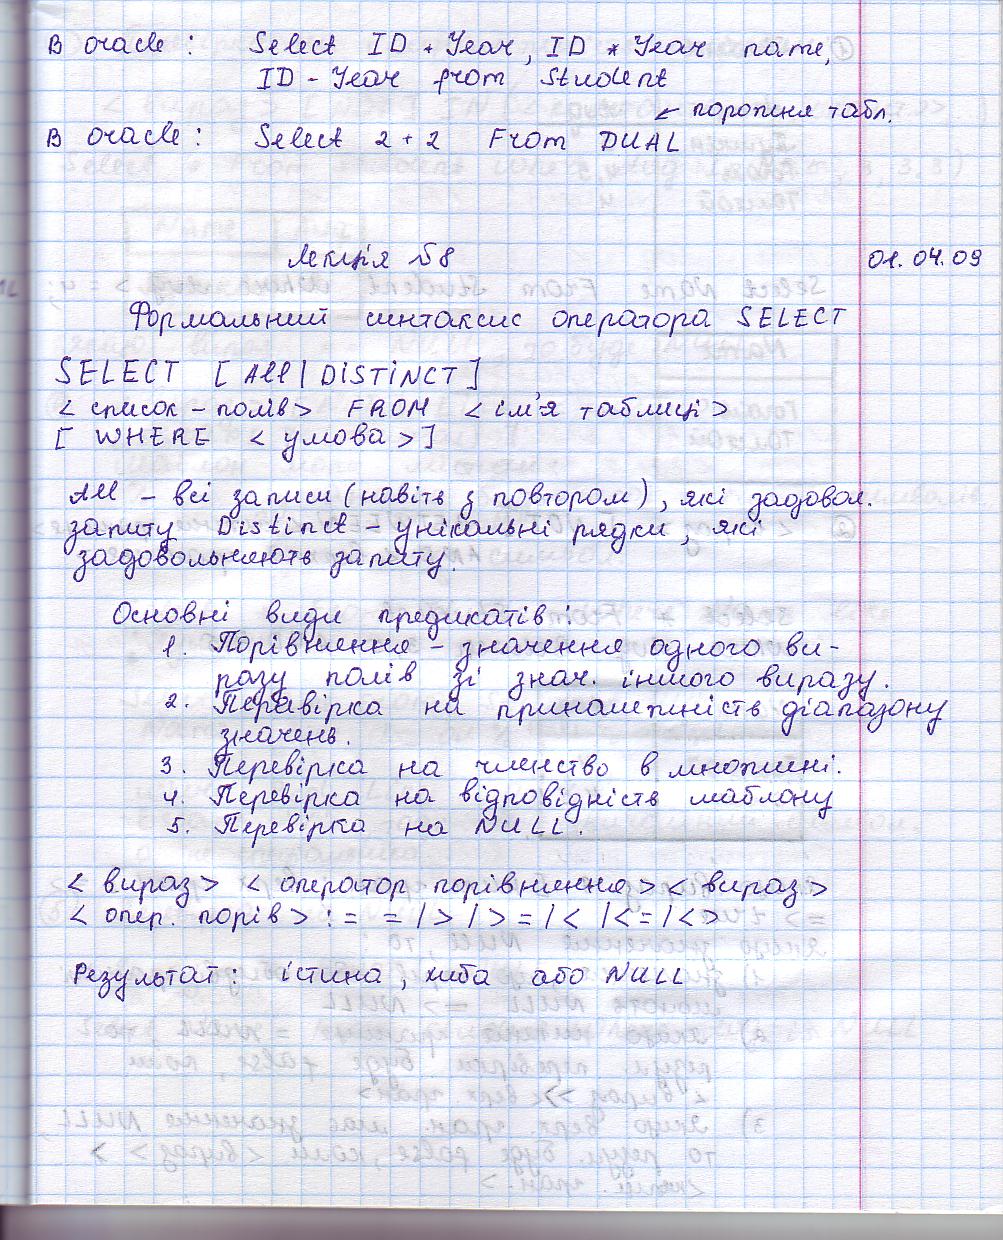 В oracle: Select ID + Year, ID * Year name,
ID - Year from Student
← порожня табл.
В oracle: Select 2 + 2 From DUAL
Лекція №8 01.04.09
Формальний синтаксис оператора SELECT
SELECT [All | DISTINCT]
<список - полів> FROM <ім'я таблиці>
[WHERE <умова>]
All - всі записи (навіть з повтором), які задовол.
запиту Distinct - унікальні рядки, які
задовольняють запиту.
Основні види предикатів:
1. Порівняння - значення одного ви-
разу полів зі знач. іншого виразу.
2. Перевірка на приналежність діапазону
значень.
3. Перевірка на членство в множині.
4. Перевірка на відповідність шаблону
5. Перевірка на NULL.
<вираз> <оператор порівняння> <вираз>
<опер. порів> := = | > | >= | < | <= | <>
Результат: істина, хиба або NULL